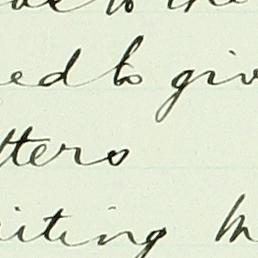 to the
ed to giv
tters
iting th